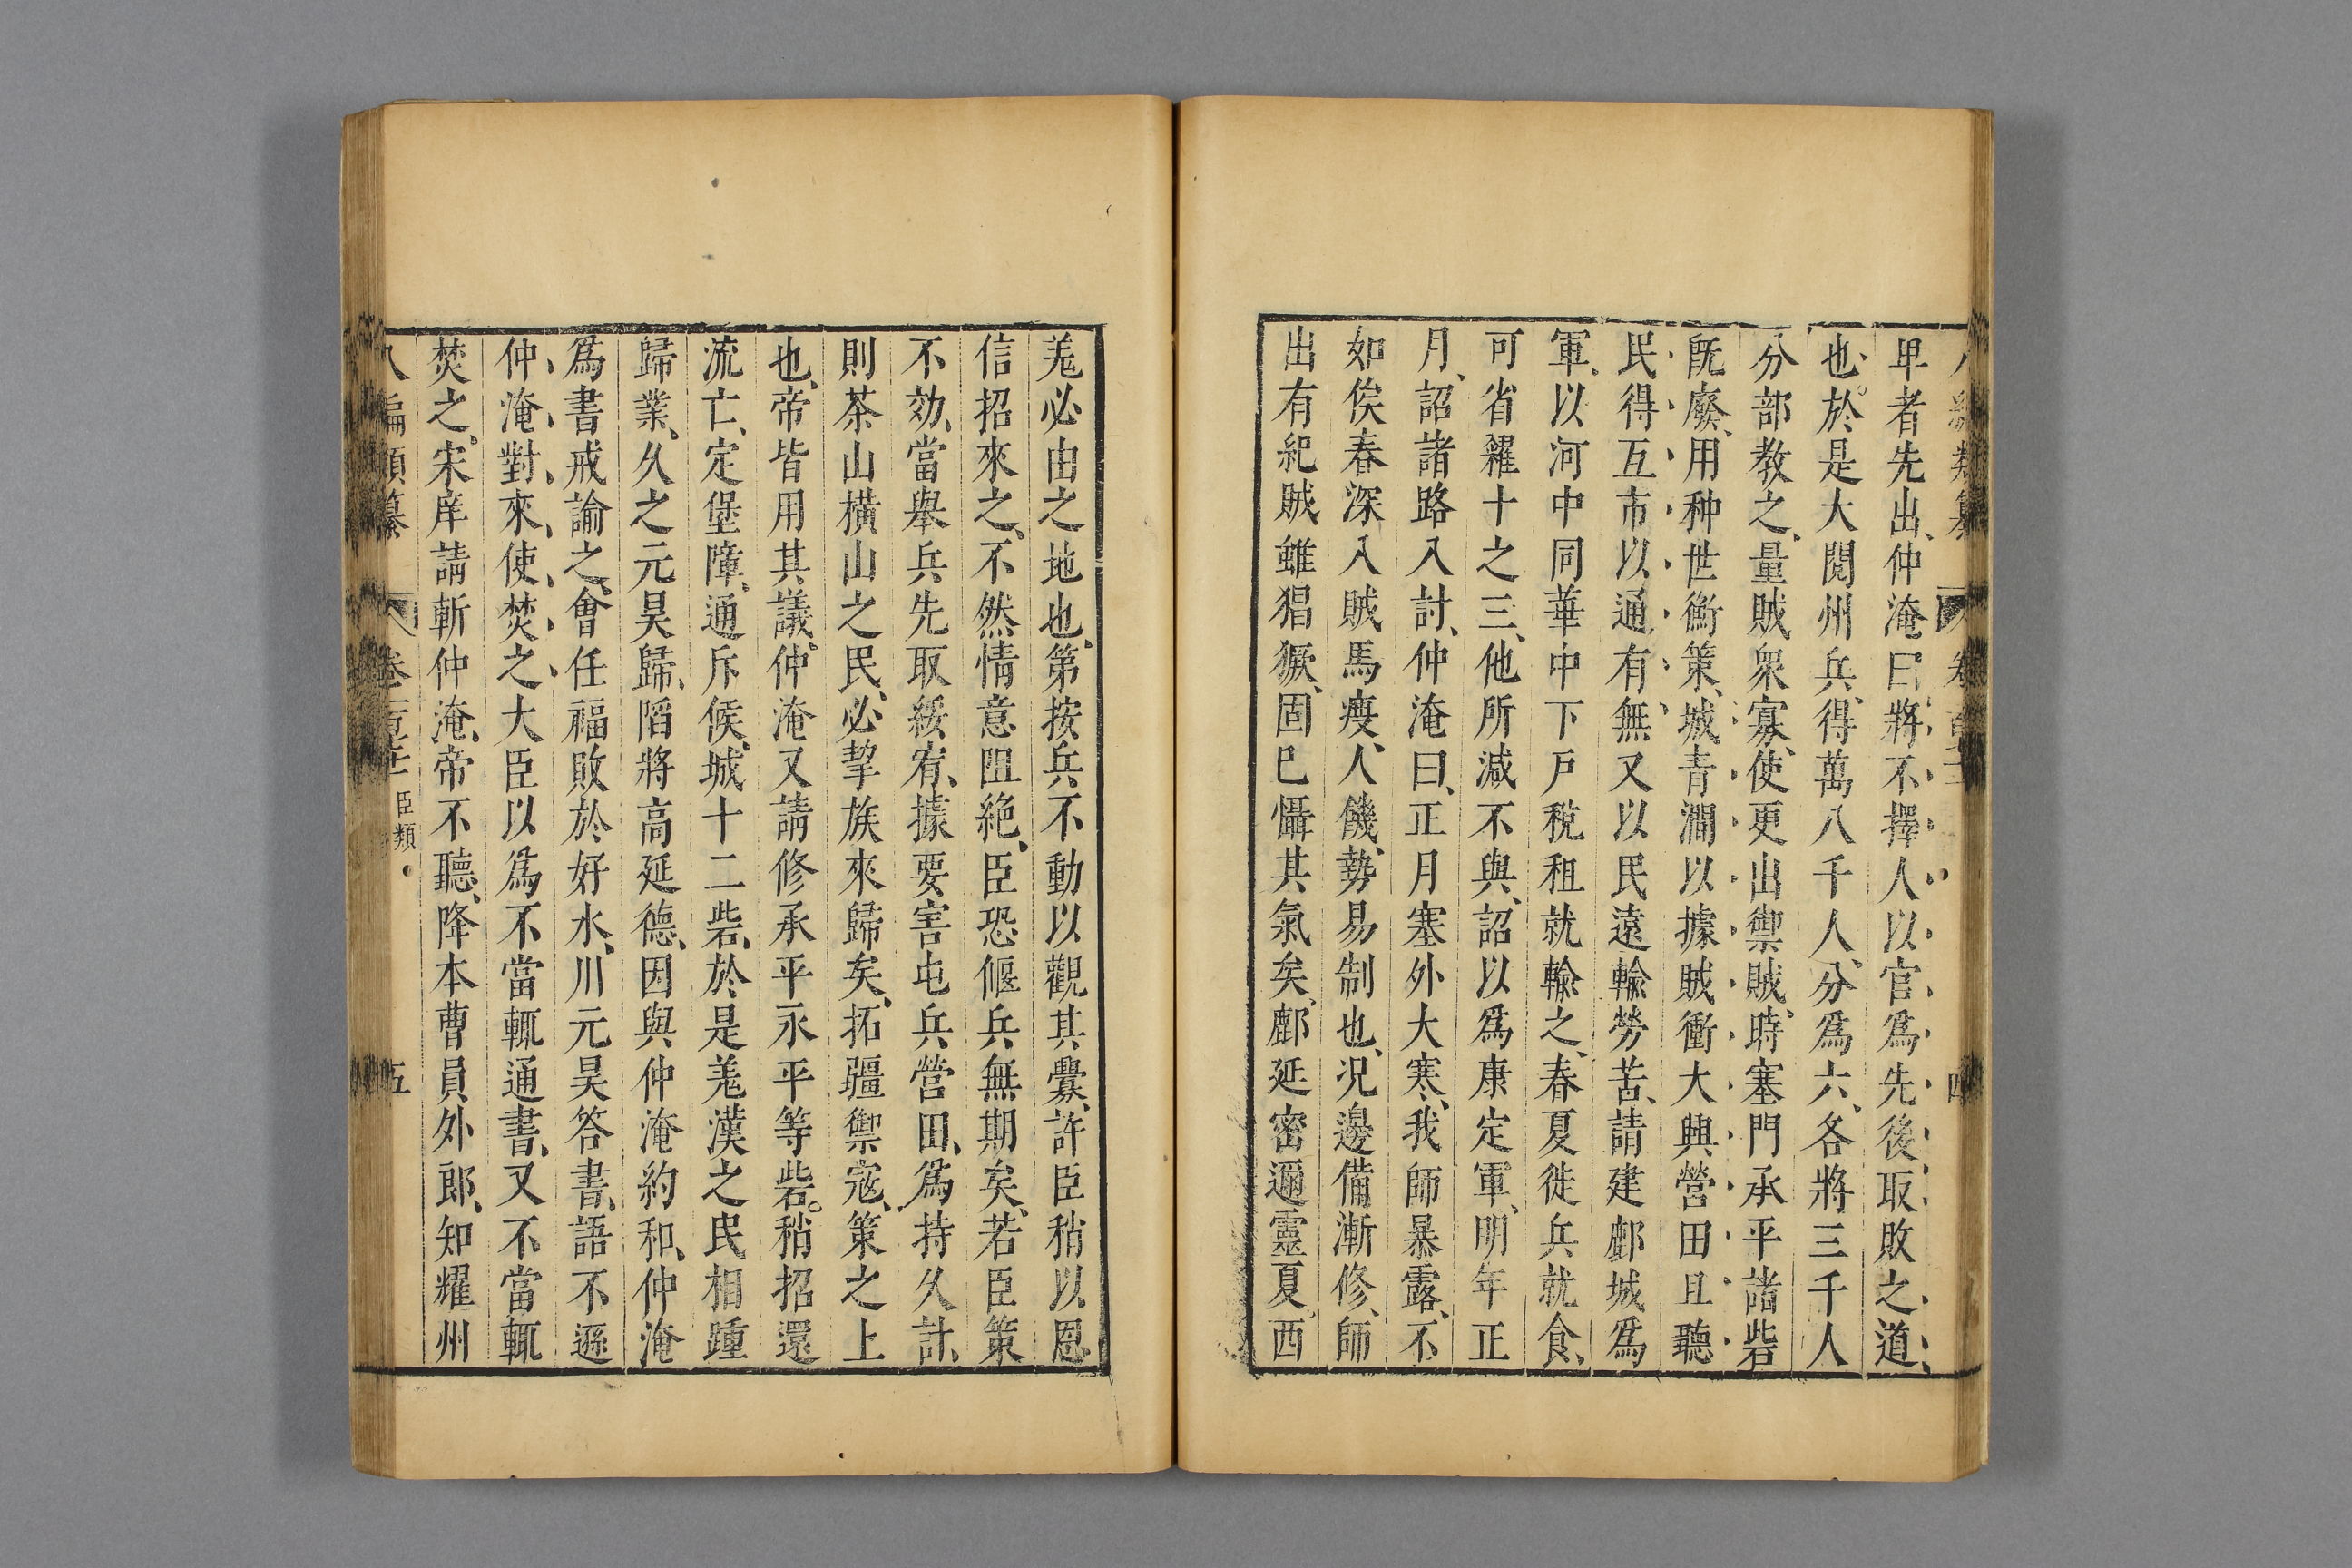 卑者先出、仲淹曰、將不擇人、以官爲先後、取敗之道、
也。於是大閱州兵、得萬八千人、分爲六、各將三千人
分部教之、量賊衆寡、使更出禦賊。時塞門承平諸砦
旣廢、用种世衡策、城青澗以據賊衝、大興營田、且聽
民得互市以通有無、又以民遠輸勞苦、請建鄜城爲
軍、以河中同華中下戸稅租就輸之、春夏徙兵就食、
可省糴十之三、他所減不與、詔以爲康定軍、明年正
月、詔諸路入討、仲淹曰、正月塞外大寒、我師暴露、不
如俟春深入賊馬瘦、人饑、勢易制也、況邊備漸修、師
出有紀賊雖猖獗、固巳懾其氣矣、鄜延密邇靈夏、西
羌必由之地也、第按兵不動以觀其釁、許臣稍以恩
信招來之、不然情意阻絕、臣恐偃兵無期矣、若臣策
不効、當舉兵先取綏宥、據要害屯兵營田、爲持久計、
則茶山橫山之民、必挈族來歸矣、拓疆禦寇、策之上
也、帝皆用其議、仲淹又請修承平永平等砦。稍招還
流亡、定堡障、通斥候、城十二砦、於是羌漢之民相踵
歸業、久之元昊歸陷將高延德、因與仲淹約和、仲淹
爲書戒諭之、會任福敗於好水、川元昊答書、語不遜
仲淹對來使焚之、大臣以爲不當輒通書、又不當輒
焚之、宋庠請斬仲淹、帝不聽、降本曹員外郎、知耀州
八編類纂 卷一百 臣類 五